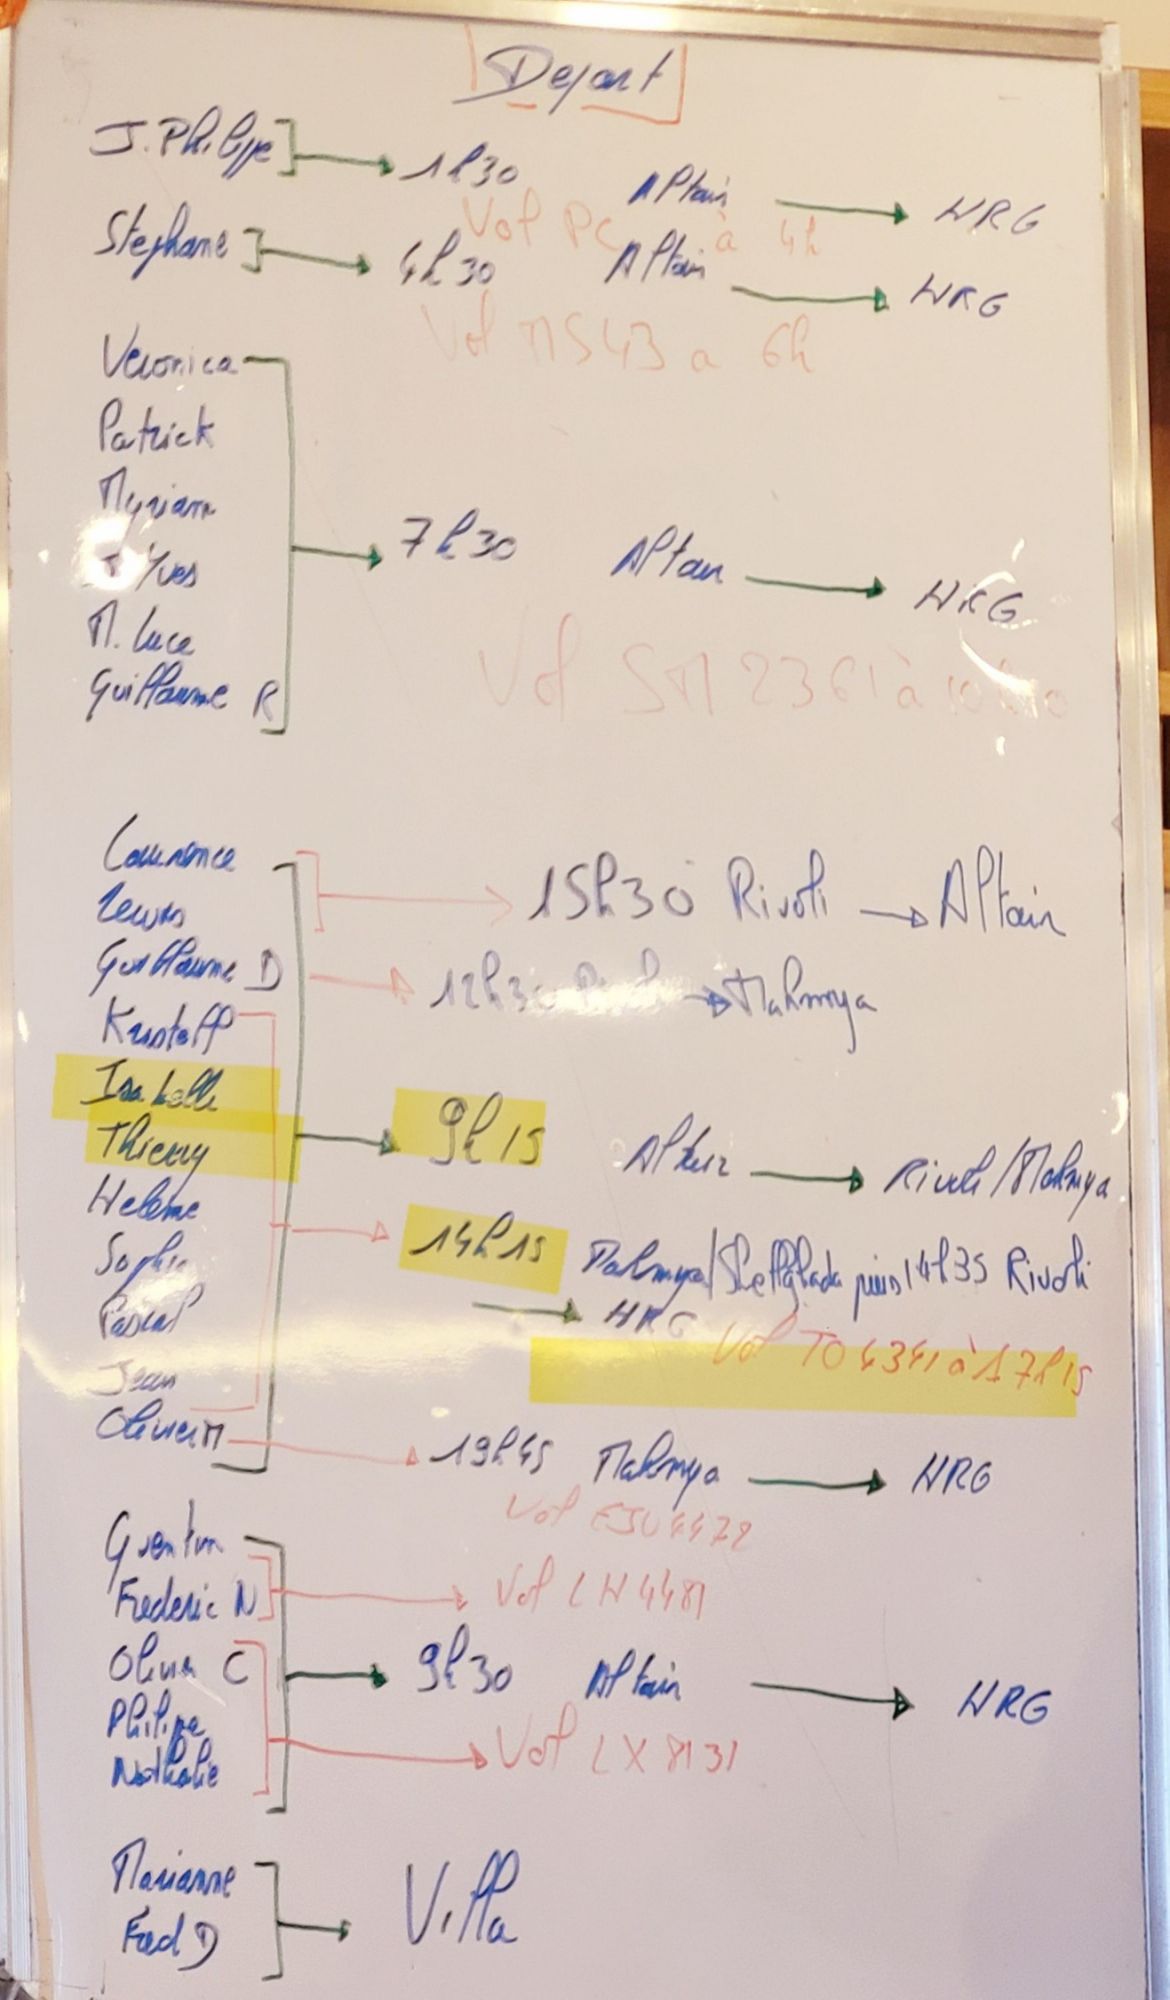 Depart
J. Philippe 1h30 Altair HRG
Vol PC à 4h
Stephane 4h30 Altair HRG
Vol MS 43 a 6h
Veronica
Patrick
Myriam
Yves 7h30 Altair HRG
M. Luce
Guillaume R
Vol SM 2361 à
Laurence
Lewis 15h30 Rivoli Altair
Guillaume D 12h30 Mahmya
Kristoff
Isabelle
Thierry 9h15 Altair Rivoli/Mahmya
Helene
Sophie 14h15 Mahmya/ puis 14h35 Rivoli
Pascal HRG
Vol TO 4341 à 17h15
Jean
Olivier M 19h45 Mahmya HRG
Vol EJU 4472
Quentin
Frederic N Vol LH 4481
Olivier C 9h30 Altair HRG
Philippe
Nathalie Vol LX 8131
Marianne
Fred D Villa